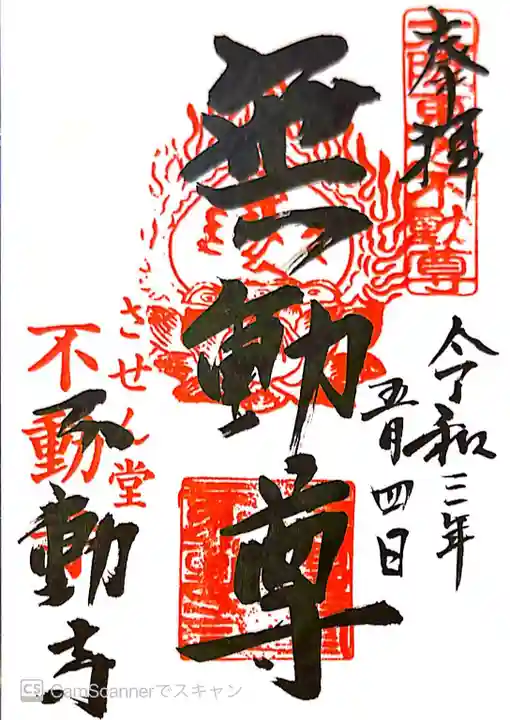 奉拝
令和三年
五月四日
無動尊
させん堂
不動
不動寺
CS CamScannerでスキャン